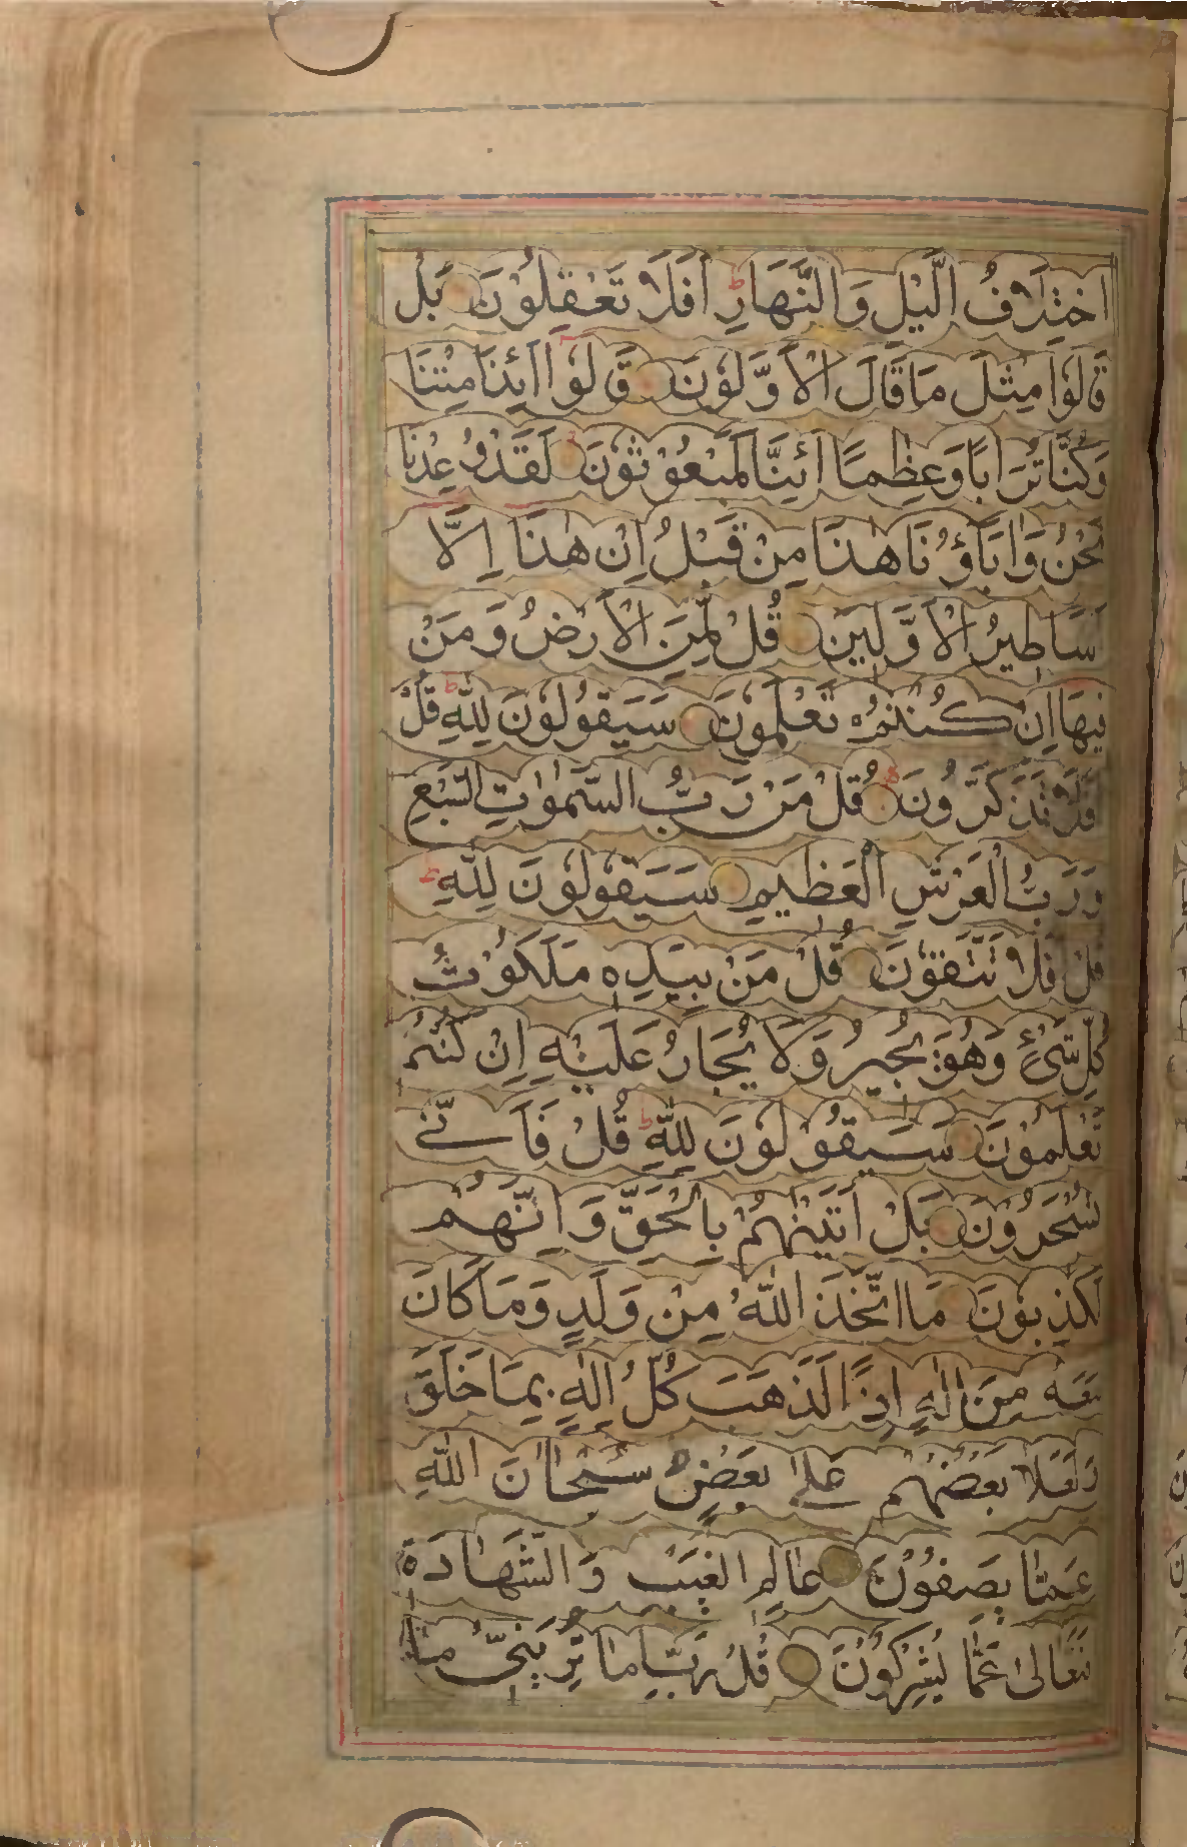 اخْتِلَافُ الَّيْلِ وَالنَّهَارِ ط اَفَلَا تَعْقِلُوْنَ بَلْ
قَالُوْا مِثْلَ مَا قَالَ الْاَوَّلُوْنَ قَالُوْا اَئِذَا مِتْنَا
وَكُنَّا تُرَابًا وَعِظٰمًا اَئِنَّا لَمَبْعُوْثُوْنَ لَقَدْ وُعِدْنَا
نَحْنُ وَاٰبَآؤُنَا هٰذَا مِنْ قَبْلُ اِنْ هٰذَا اِلَّا
اَسَاطِيْرُ الْاَوَّلِيْنَ قُلْ لِّمَنِ الْاَرْضُ وَمَنْ
فِيْهَا اِنْ كُنْتُمْ تَعْلَمُوْنَ سَيَقُوْلُوْنَ لِلّٰهِ ط قُلْ
اَفَلَا تَذَكَّرُوْنَ قُلْ مَنْ رَّبُّ السَّمٰوٰتِ السَّبْعِ
وَرَبُّ الْعَرْشِ الْعَظِيْمِ سَيَقُوْلُوْنَ لِلّٰهِ ط
قُلْ اَفَلَا تَتَّقُوْنَ قُلْ مَنْ بِيَدِهٖ مَلَكُوْتُ
كُلِّ شَيْءٍ وَهُوَ يُجِيْرُ وَلَا يُجَارُ عَلَيْهِ اِنْ كُنْتُمْ
تَعْلَمُوْنَ سَيَقُوْلُوْنَ لِلّٰهِ ط قُلْ فَاَنّٰى
تُسْحَرُوْنَ بَلْ اَتَيْنٰهُمْ بِالْحَقِّ وَاِنَّهُمْ
لَكٰذِبُوْنَ مَا اتَّخَذَ اللّٰهُ مِنْ وَلَدٍ وَمَا كَانَ
مَعَهٗ مِنْ اِلٰهٍ اِذًا لَّذَهَبَ كُلُّ اِلٰهٍ بِمَا خَلَقَ
وَلَعَلَا بَعْضُهُمْ عَلٰى بَعْضٍ سُبْحَانَ اللّٰهِ
عَمَّا يَصِفُوْنَ عَالِمِ الْغَيْبِ وَالشَّهَادَةِ
فَتَعَالٰى عَمَّا يُشْرِكُوْنَ قُلْ رَّبِّ اِمَّا تُرِيَنِّىْ مَا